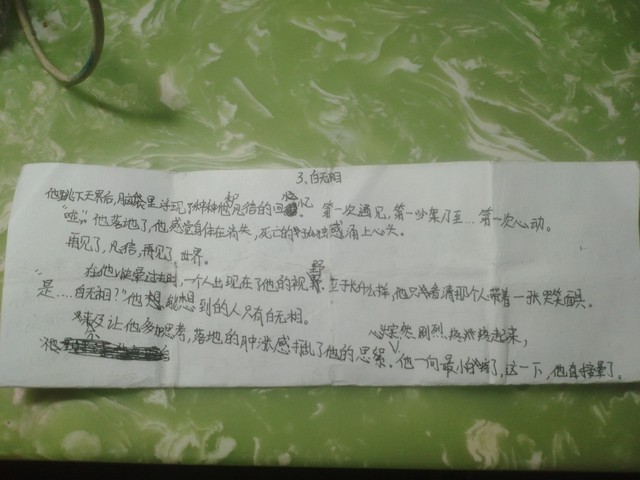 3.白无相
他跳下天界后,脑袋里浮现了种种他和凡信的回忆。第一次遇见,第一次架乃至…第一次心动。
“咚”他落地了,他感觉身体在消失,死亡的孤独感涌上心头。
再见了,凡信,再见了,世界。
在他快晕过去时,一个人出现在了他的视野,立于长什么样,他只看清那个人带着一张哭笑面具。
“是……白无相?”他想,能想到的人只有白无相。
来不及让他多加思考,落地的肿胀感打乱了他的思绪。心突然剧烈疼痛起来,
他一向最怕疼了,这一下,他直接晕了。